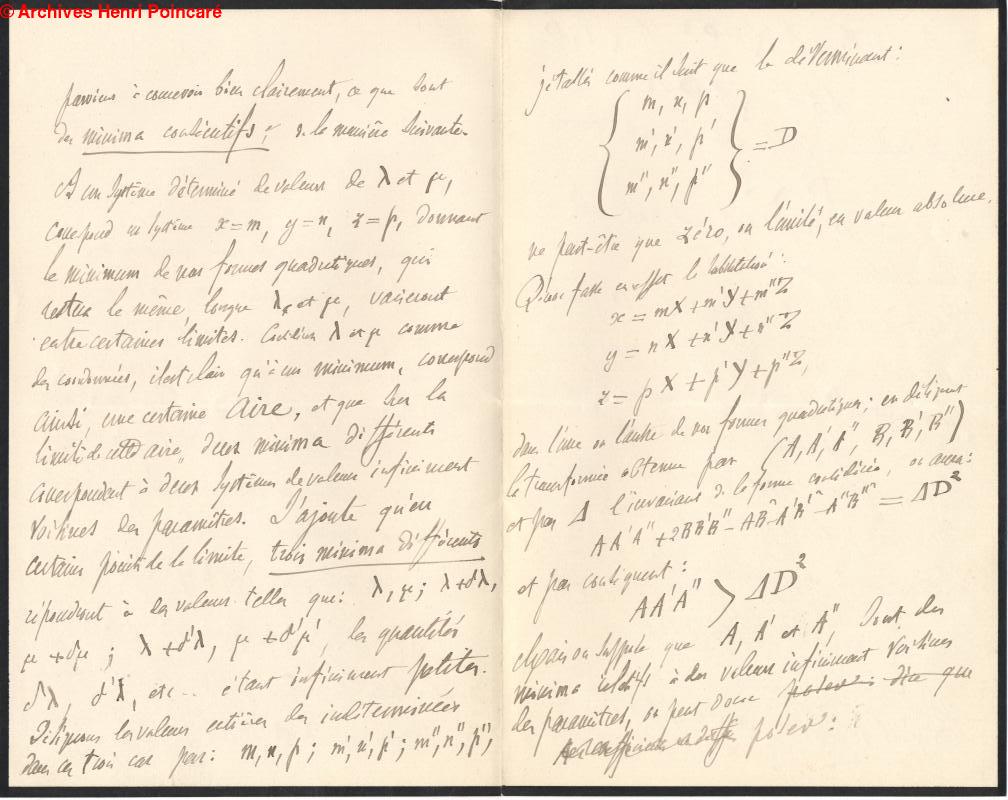 © Archives Henri Poincaré
parviens à concevoir bien clairement, ce que sont
des minima consécutifs, de la manière suivante.
A un système déterminé de valeurs de λ et μ,
correspond un système x=m, y=n, z=p, donnant
le minimum de nos formes quadratiques, qui
restera le même, lorsque λ et μ, varieront
entre certaines limites. Considérons λ et μ comme
des coordonnées, il est clair qu'à un minimum, correspond
ainsi, une certaine aire, et que sur la
limite de cette aire, deux minima différents
correspondent à deux systèmes de valeurs infiniment
voisines des paramètres. J'ajoute qu'en
certains points de la limite, trois minima différents
répondront à des valeurs telles que: λ, μ; λ+δλ,
μ+δμ; λ+δ'λ, μ+δ'μ, les quantités
δλ, δ'λ, etc... étant infiniment petites.
Désignons les valeurs entières des indéterminées
dans ces trois cas par: m, n, p; m', n', p'; m'', n'', p'',
j'établis comme il suit que le déterminant:
m, n, p
m', n', p'
m'', n'', p''
= D
ne peut-être que zéro, ou l'unité, en valeur absolue.
Qu'on fasse en effet la substitution:
x = mX + m'Y + m''Z
y = nX + n'Y + n''Z
z = pX + p'Y + p''Z,
dans l'une ou l'autre de nos formes quadratiques; en désignant
la transformée obtenue par (A, A', A'', B, B', B'')
et par Δ l'invariant de la forme considérée, on aura:
AA'A'' + 2BB'B'' - AB² - A'B'² - A''B''² = ΔD²
et par conséquent:
AA'A'' > ΔD²
Mais on suppose que A, A' et A'', sont des
minima relatifs à des valeurs infiniment voisines
des paramètres, on peut donc poser: dire que
poser: